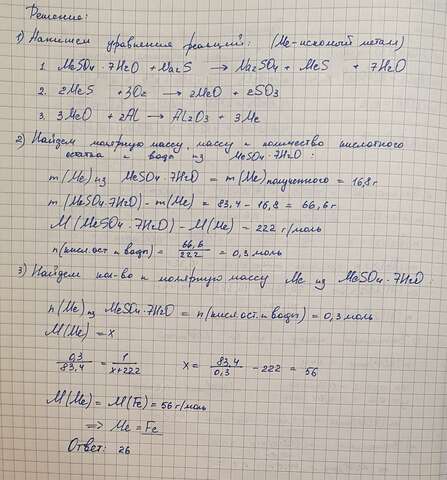 Решение:
1) Напишем уравнения реакций: (Me-искомый металл)
1. MeSO4·7H2O + Na2S → Na2SO4 + MeS + 7H2O
2. 2MeS + 3O2 → 2MeO + 2SO2
3. 3MeO + 2Al → Al2O3 + 3Me
2) Найдем молярную массу, массу и количество кислотного
остатка и воды из MeSO4·7H2O:
m(Me) из MeSO4·7H2O = m(Me)полученного = 16,8 г
m(MeSO4·7H2O) - m(Me) = 83,4 - 16,8 = 66,6 г
M(MeSO4·7H2O) - M(Me) = 222 г/моль
n(кисл.ост и воды) = 66,6/222 = 0,3 моль
3) Найдем кол-во и молярную массу Me из MeSO4·7H2O
n(Me) из MeSO4·7H2O = n(кисл.ост. и воды) = 0,3 моль
M(Me) = x
0,3/83,4 = 1/x+222 x = 83,4/0,3 - 222 = 56
M(Me) = M(Fe) = 56 г/моль
=> Me = Fe
Ответ: 26